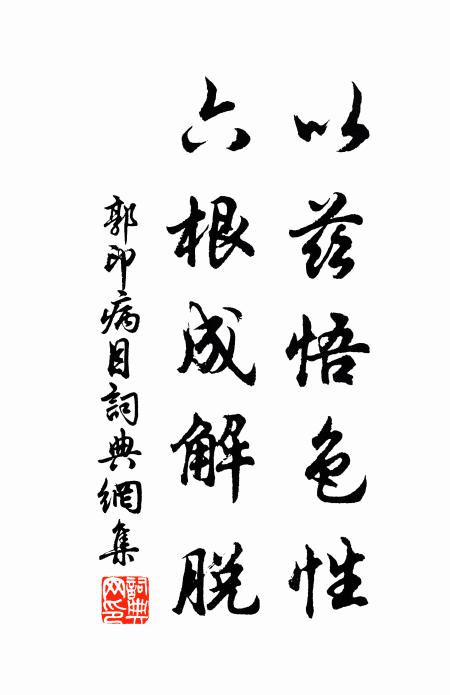 以茲悟色性
六根成解脱
郭印病目詞典網集
詞典網印